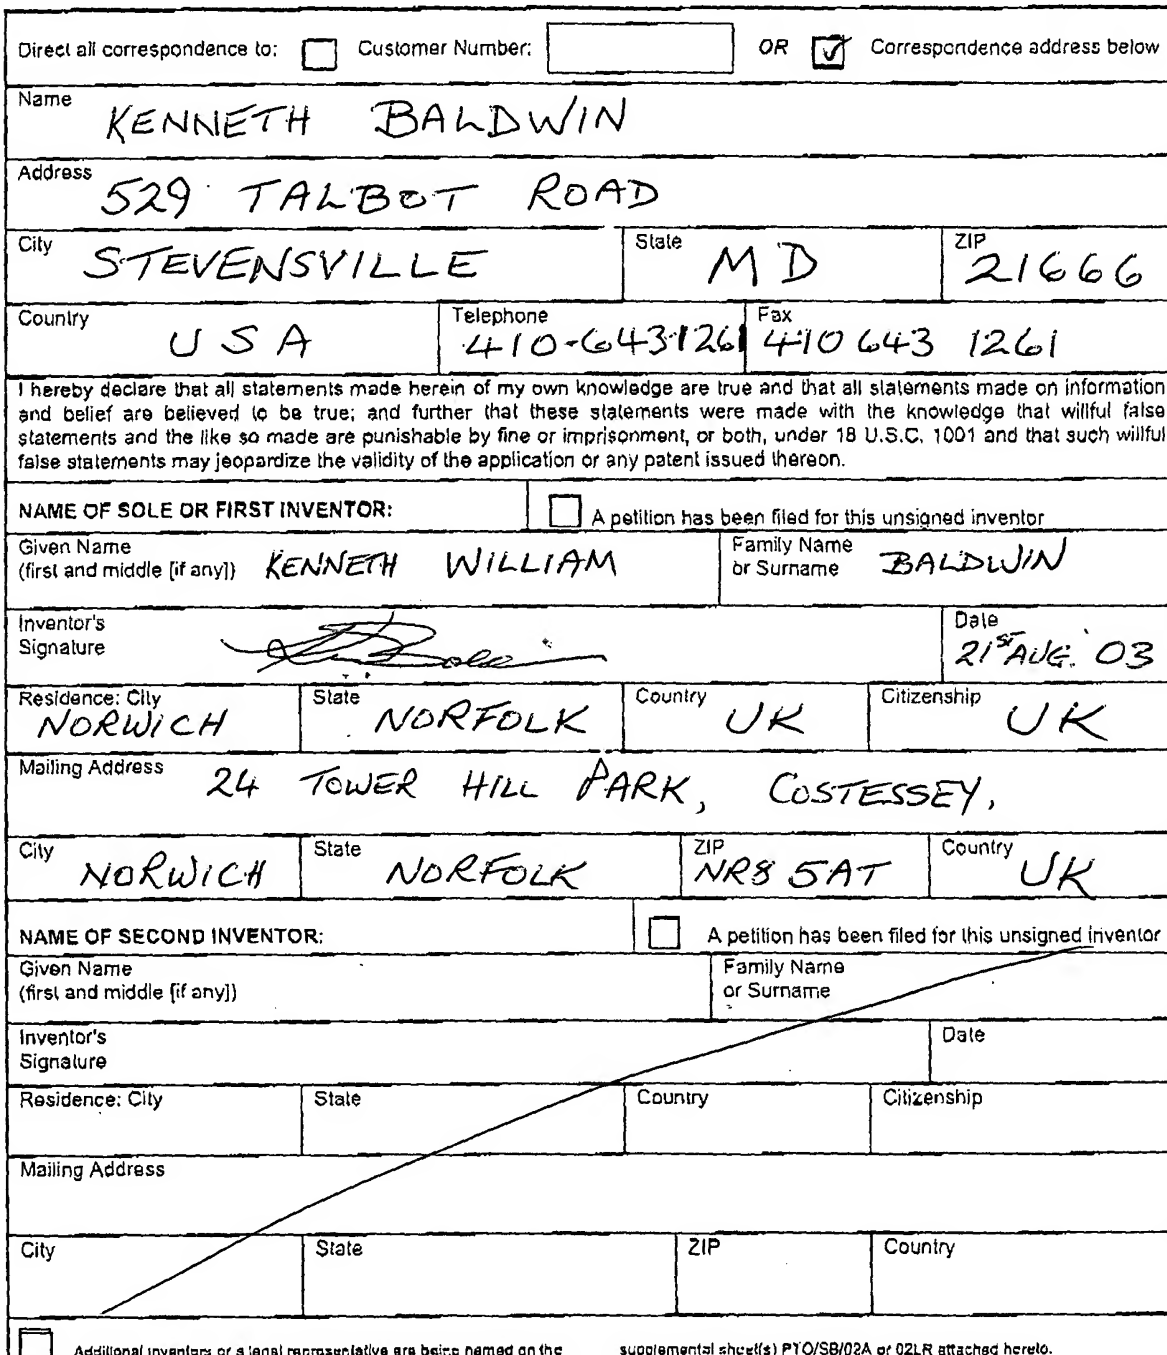 Direct all correspondence to: Customer Number: OR Correspondence address below
Name KENNETH BALDWIN
Address 529 TALBOT ROAD
City STEVENSVILLE State MD ZIP 21666
Country USA Telephone 410-643-1261 Fax 410 643 1261
I hereby declare that all statements made herein of my own knowledge are true and that all statements made on information
and belief are believed to be true; and further that these statements were made with the knowledge that willful false
statements and the like so made are punishable by fine or imprisonment, or both, under 18 U.S.C. 1001 and that such willful
false statements may jeopardize the validity of the application or any patent issued thereon.
NAME OF SOLE OR FIRST INVENTOR: A petition has been filed for this unsigned inventor
Given Name
(first and middle [if any]) KENNETH WILLIAM
Family Name
or Surname BALDWIN
Inventor's
Signature
Date
21ST AUG. 03
Residence: City NORWICH State NORFOLK Country UK Citizenship UK
Mailing Address 24 TOWER HILL PARK, COSTESSEY,
City NORWICH State NORFOLK ZIP NR8 5AT Country UK
NAME OF SECOND INVENTOR: A petition has been filed for this unsigned inventor
Given Name
(first and middle [if any])
Family Name
or Surname
Inventor's
Signature
Date
Residence: City State Country Citizenship
Mailing Address
City State ZIP Country
Additional inventors or a legal representative are being named on the supplemental sheet(s) PTO/SB/02A or 02LR attached hereto.